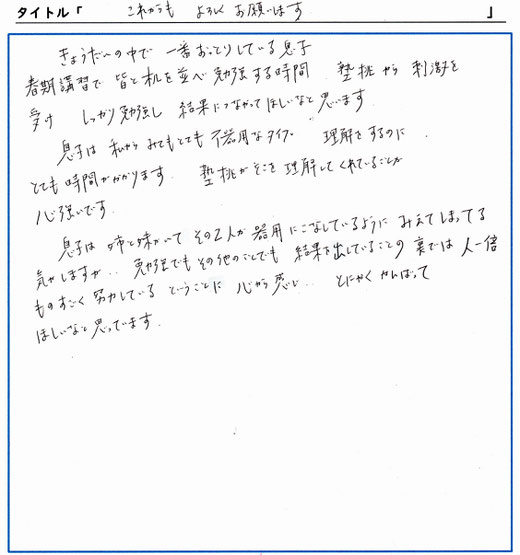 タイトル「 これからも よろしく お願いします 」
きょうだいの中で 一番おっとりしている息子
春期講習で 皆と机を並べ勉強する時間 塾桃から 刺激を
受け しっかり勉強し 結果につながってほしいなと思います。
息子は 私からみてもとても 不器用なタイプ。 理解をするのに
とても時間がかかります 塾桃がそこを理解してくれていることが
心強いです。
息子は 姉と妹がいて その2人が器用にこなしているように みえてしまってる
気がしますが.. 勉強でもその他のことでも 結果を出していることの裏では 人一倍
ものすごく 努力している ということに 心から感じ.. とにかく がんばって
ほしいなと思っています.